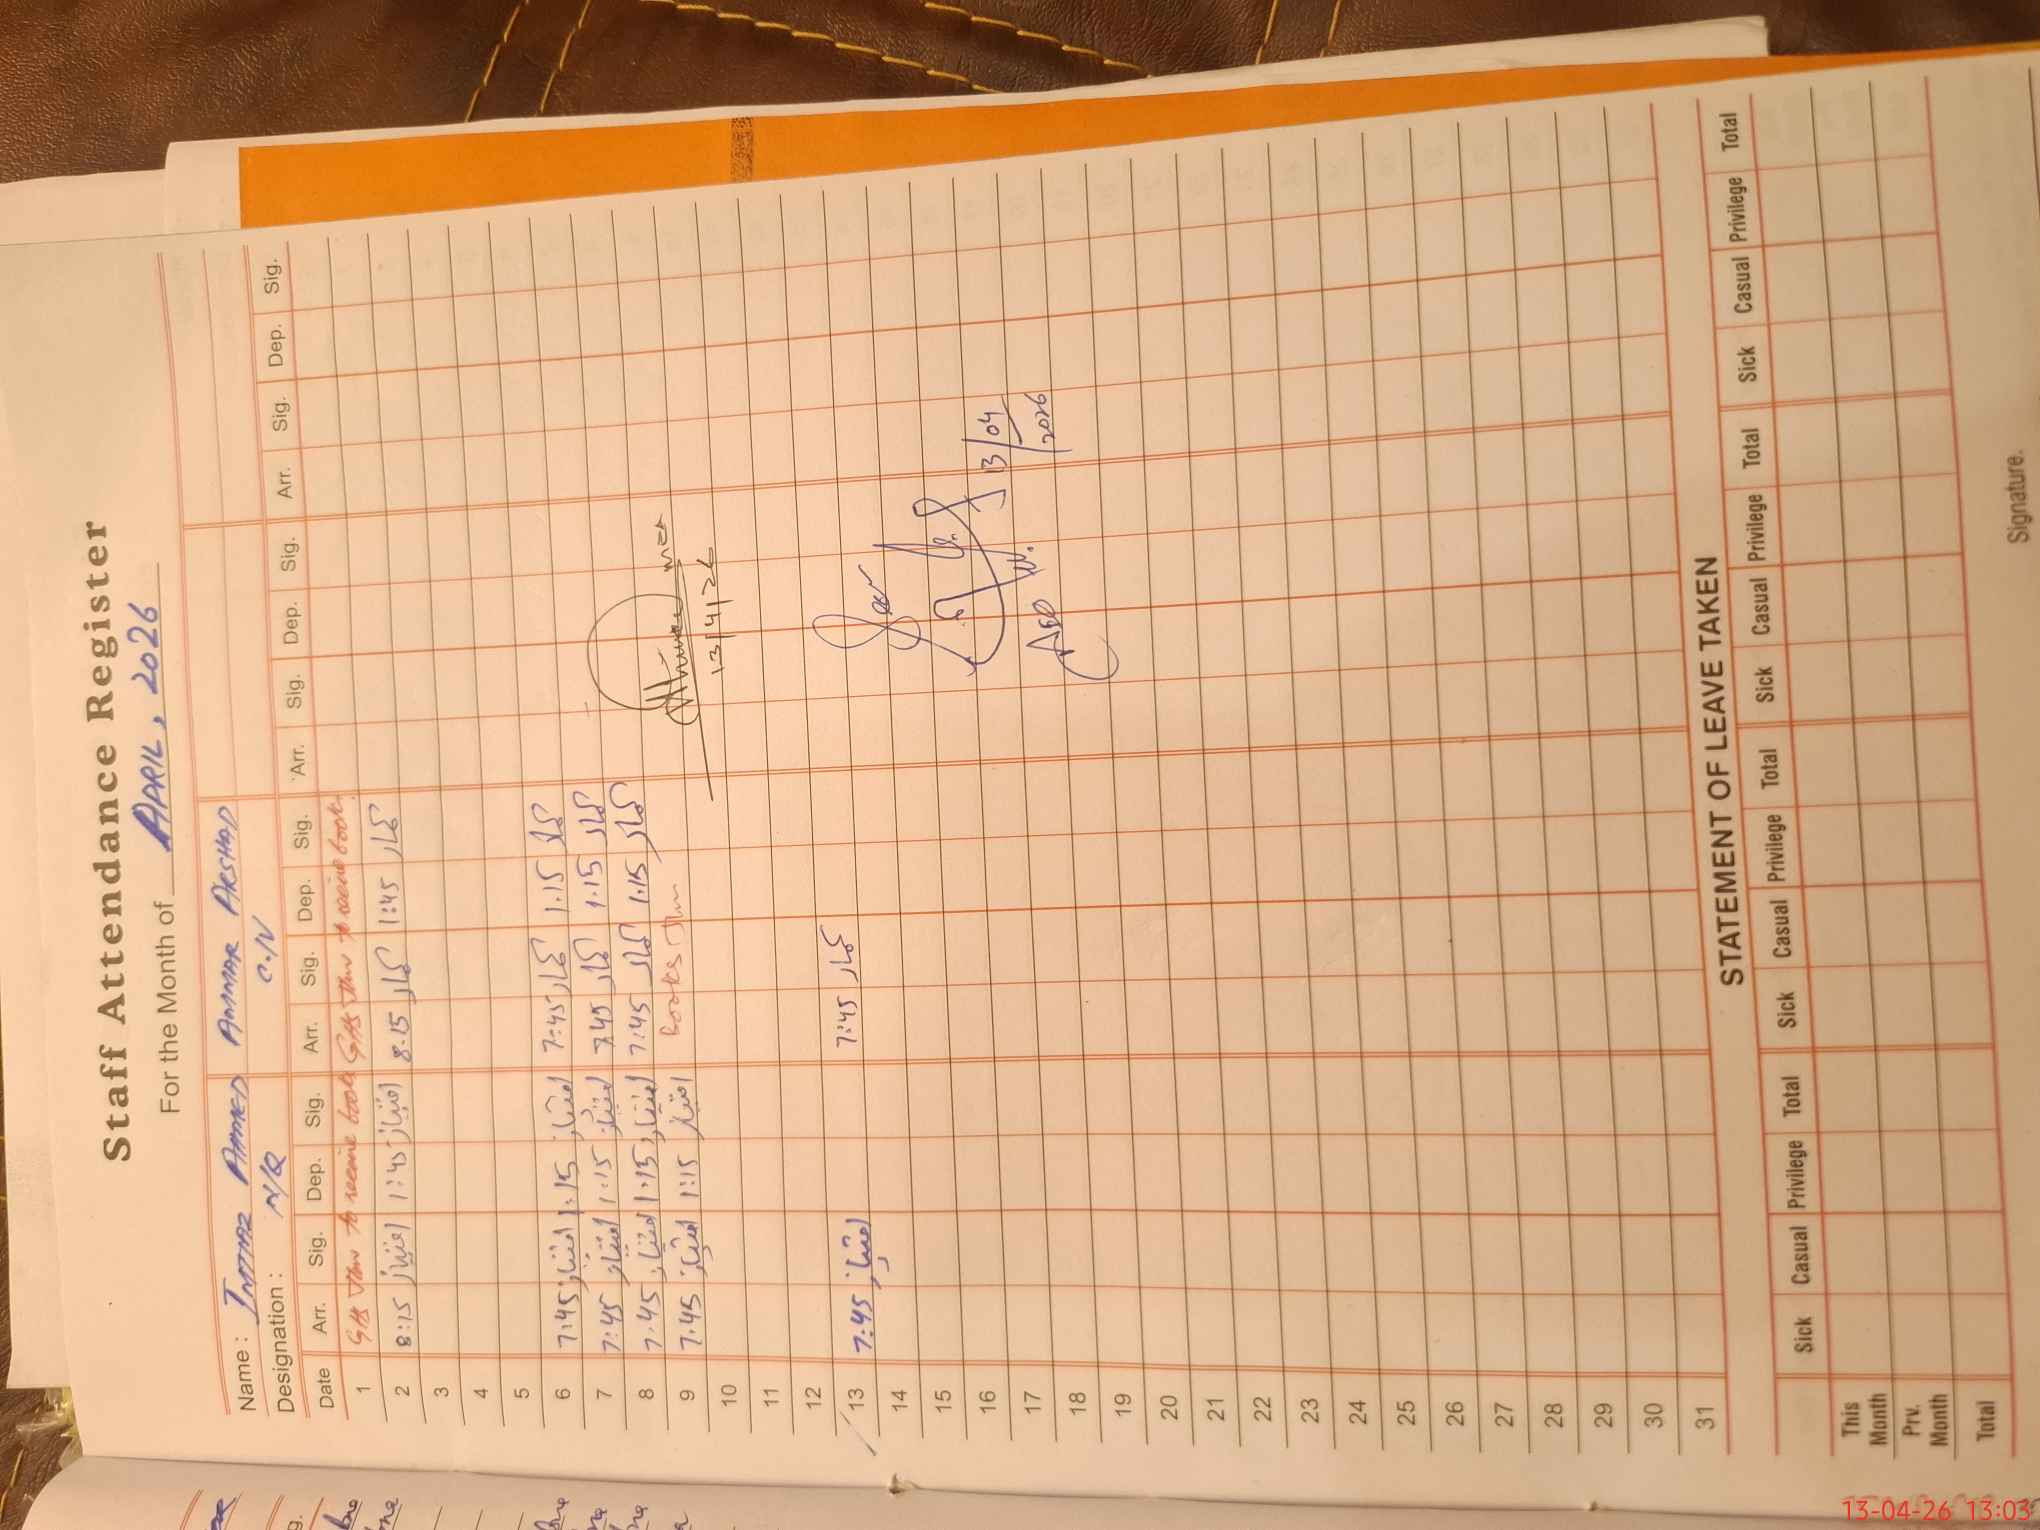 Staff Attendance Register
For the Month of APRIL, 2026
Name : IMTIAZ AHMED AMMAR ARSHAD
Designation : N/Q C.IV
Date Arr. Sig. Dep. Sig. Arr. Sig. Dep. Sig. Arr. Sig. Dep. Sig. Arr. Sig. Dep. Sig.
1 GHS to receive books GHS to receive books
2 8:15 امتیاز 1:45 امتیاز 8.15 عمار 1:45 عمار
3
4
5
6 7:45 امتیاز 1:15 امتیاز 7:45 عمار 1.15 عمار
7 7:45 امتیاز 1:15 امتیاز 7.45 عمار 1.15 عمار
8 7.45 امتیاز 1:15 امتیاز 7:45 عمار 1.15 عمار
9 7.45 امتیاز 1:15 امتیاز Books
MEA
13/4/26
10
11
12
13 7:45 امتیاز 7:45 عمار
14
15
16
13/04/2026
17
18
19
20
21
22
23
24
25
26
27
28
29
30
31
STATEMENT OF LEAVE TAKEN
Sick Casual Privilege Total Sick Casual Privilege Total Sick Casual Privilege Total Sick Casual Privilege Total
This Month
Prv. Month
Total
Signature.
13-04-26 13:03